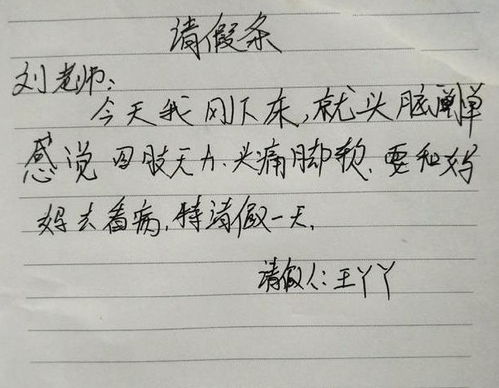 请假条
刘老师:
今天我刚下床,就头脑
感觉四肢无力、头痛脚软,要和妈
妈去看病,特请假一天,
请假人:王丫丫